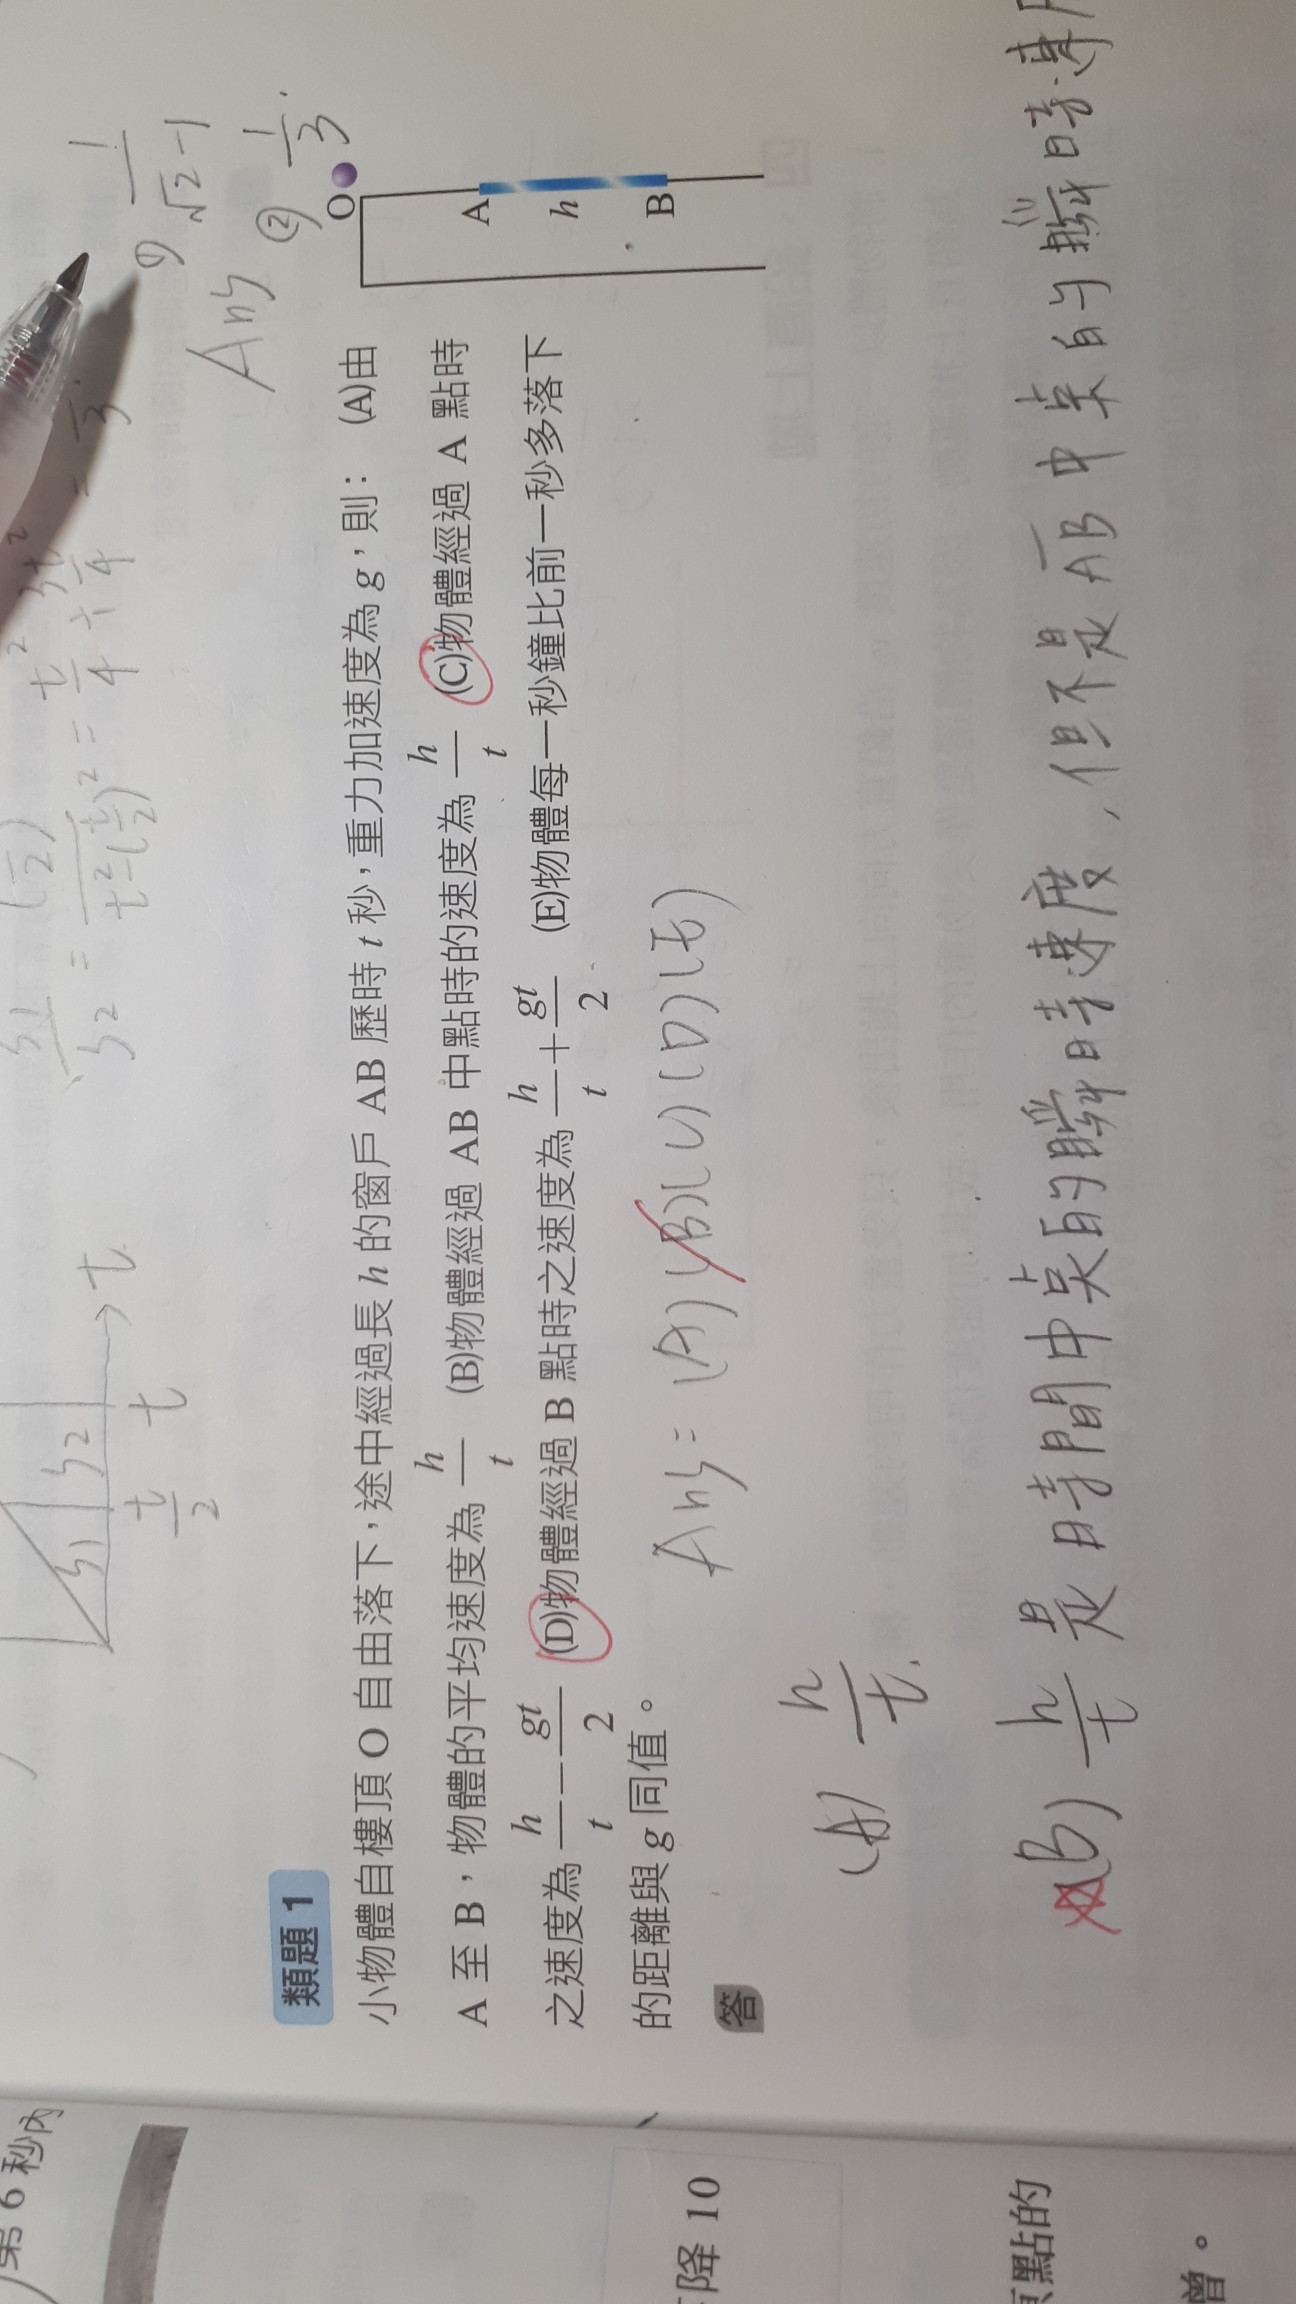 第 6 秒內
降 10
點的
增。
S1
S2
t/2
t
t
S1/S2 = (t/2)² / (t²-(t/2)²) = t²/4 ÷ 3t²/4 = 1/3
Ans
1/(√2-1)
(2) 1/3
類題 1
小物體自樓頂 O 自由落下，途中經過長 h 的窗戶 AB 歷時 t 秒，重力加速度為 g，則： (A)由
A 至 B，物體的平均速度為 h/t (B)物體經過 AB 中點時的速度為 h/t (C)物體經過 A 點時
之速度為 h/t - gt/2 (D)物體經過 B 點時之速度為 h/t + gt/2 (E)物體每一秒鐘比前一秒多落下
的距離與 g 同值。
O
A
h
B
答
Ans = (A)(B)(C)(D)(E)
(A) h/t.
(B) h/t 是時間中點的瞬時速度，但不是 AB 中點的瞬時速